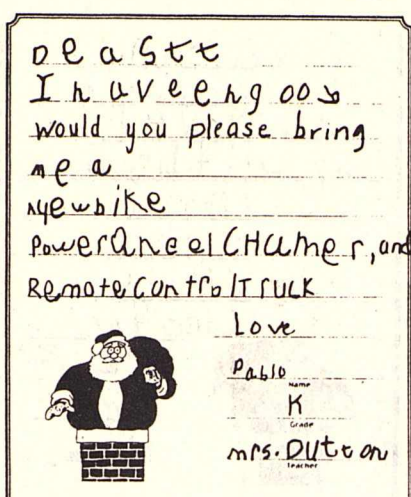 Deastt
Inaveengoos
would you please bring
me a
Nyewbike
PowerAneelCHamer, and
RemoteControlTruck
Love
Pablo
Name
K
Grade
mrs. Dutton
Teacher